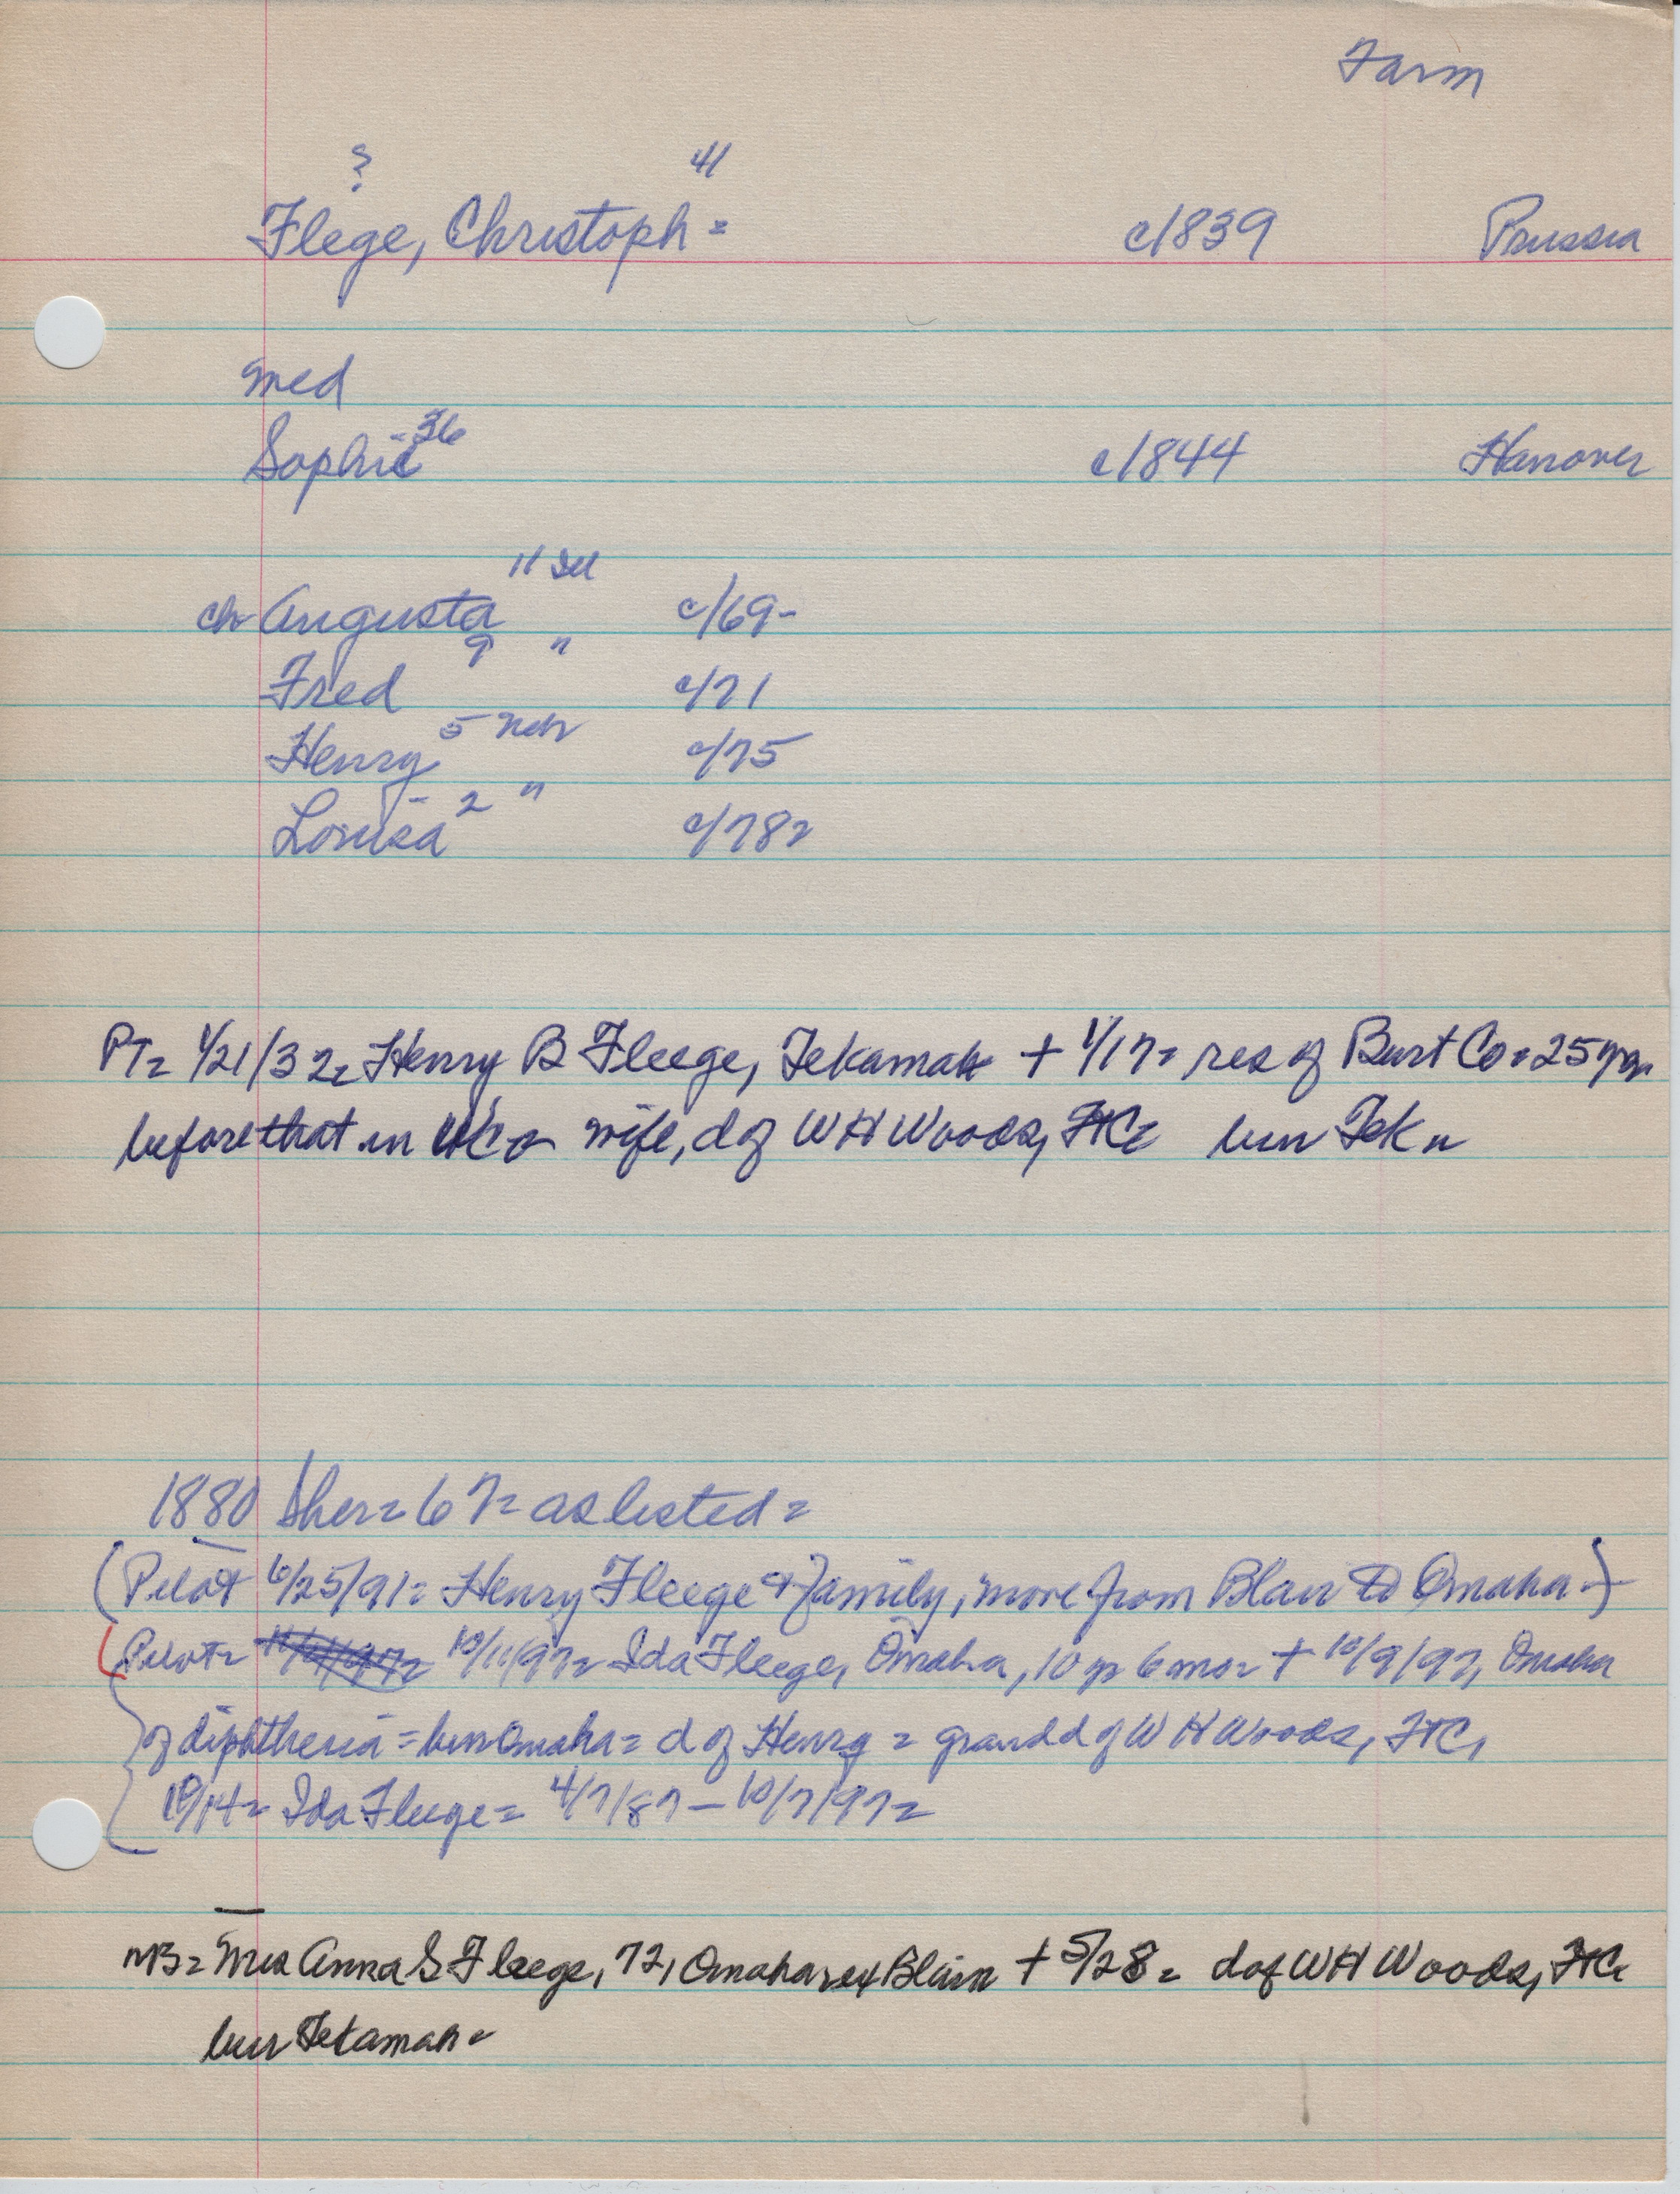 Farm
? 41
Flege, Christoph = c1839 Prussia
med
Sophie 36 c1844 Hanover
11 Ill
ch Augusta c/69-
9 "
Fred c/71
5 Neb
Henry c/75
2 "
Louisa c/78=
PT= 1/21/32= Henry B Fleege, Tekamah + 1/17= res of Burt Co=25 yrs
before that in WC= wife, d of WH Woods, FtC= bur Tek=
1880 Sher=67= as listed=
(Pilot 6/25/91= Henry Fleege & family, move from Blair to Omaha-)
(Pilot= 10/11/97= Ida Fleege, Omaha, 10 yr 6 mo= + 10/9/97, Omaha
of diphtheria = bur Omaha= d of Henry = grandd of W H Woods, FtC,
10/14= Ida Fleege= 4/7/87-10/7/97=
Mrs Anna S Fleege, 72, Omaha, ex Blair + 5/28= d of WH Woods, FtC=
bur Tekamah=